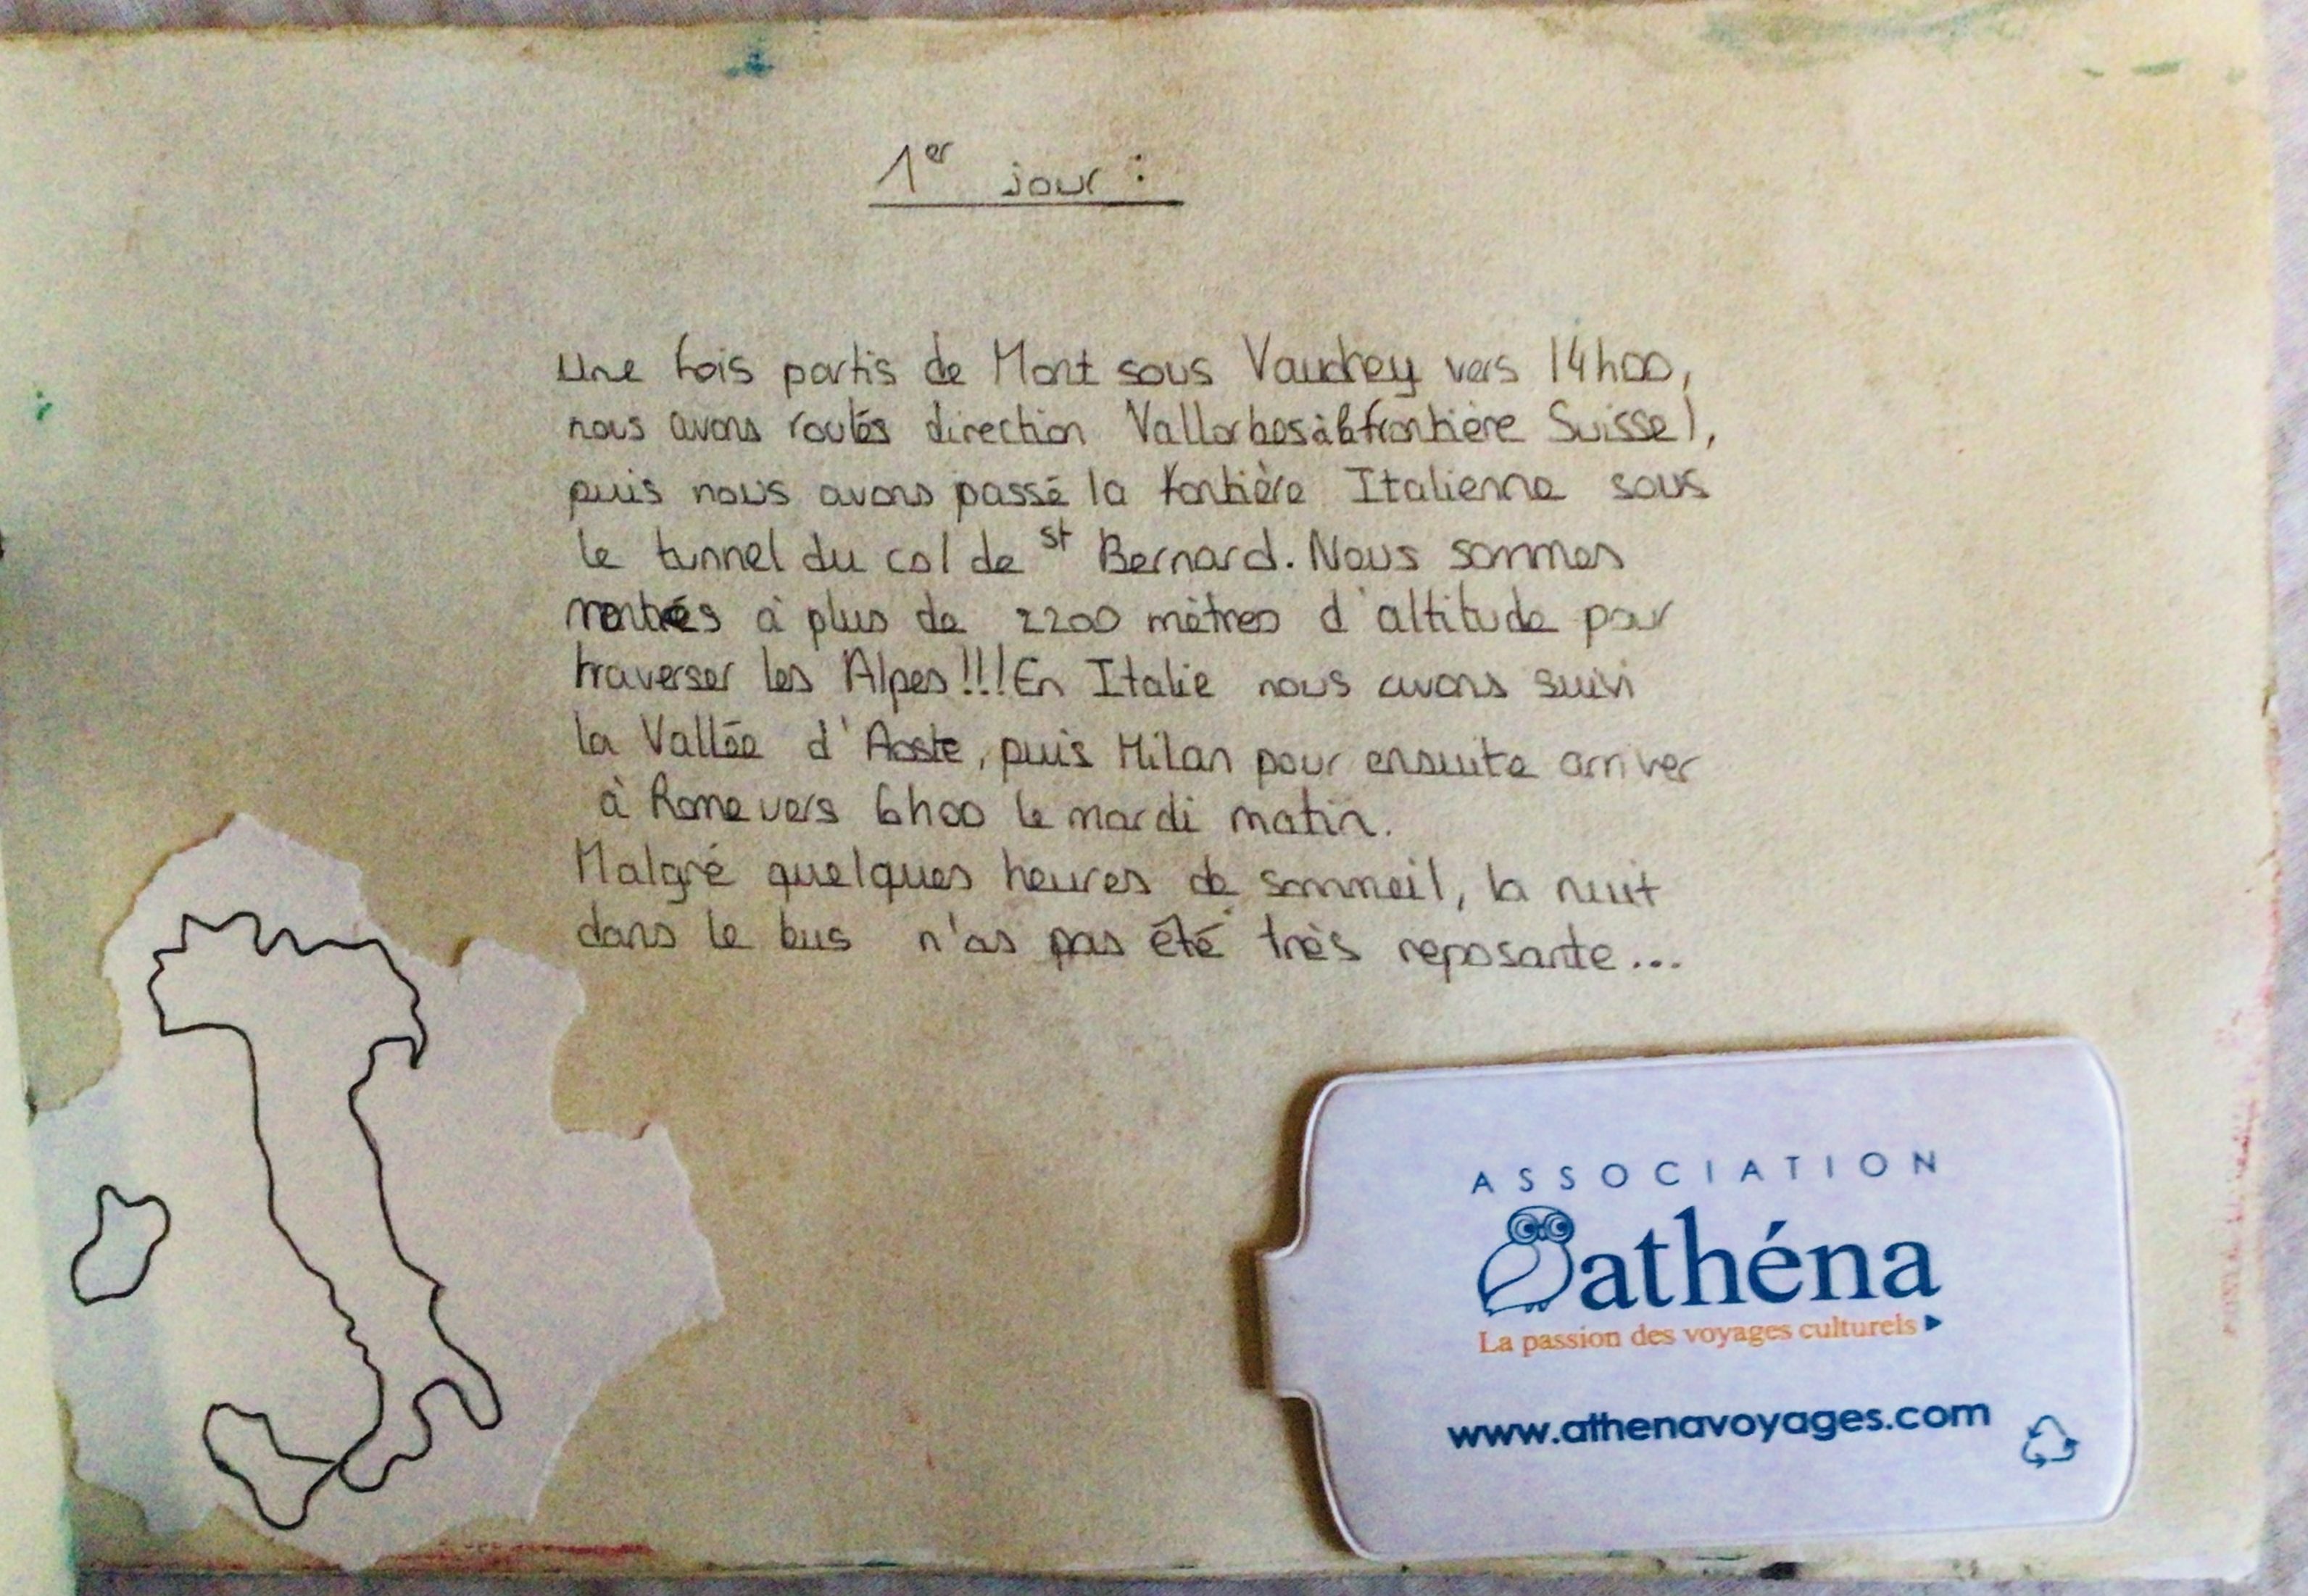 1er jour :
Une fois partis de Mont sous Vaudrey vers 14h00,
nous avons roulés direction Vallorbes à la frontière Suisse),
puis nous avons passé la frontière Italienne sous
le tunnel du col de st Bernard. Nous sommes
montés à plus de 2200 mètres d'altitude pour
traverser les Alpes!!! En Italie nous avons suivi
la Vallée d'Aoste, puis Milan pour ensuite arriver
à Rome vers 6h00 le mardi matin.
Malgré quelques heures de sommeil, la nuit
dans le bus n'as pas été très reposante...
ASSOCIATION
athéna
La passion des voyages culturels
www.athenavoyages.com